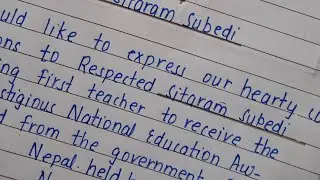 Sitaram Subedi
uld like to express our hearty
ons to Respected Sitaram Subedi
ing first teacher to receive the
stigious National Education Aw-
d from the government
Nepal. held